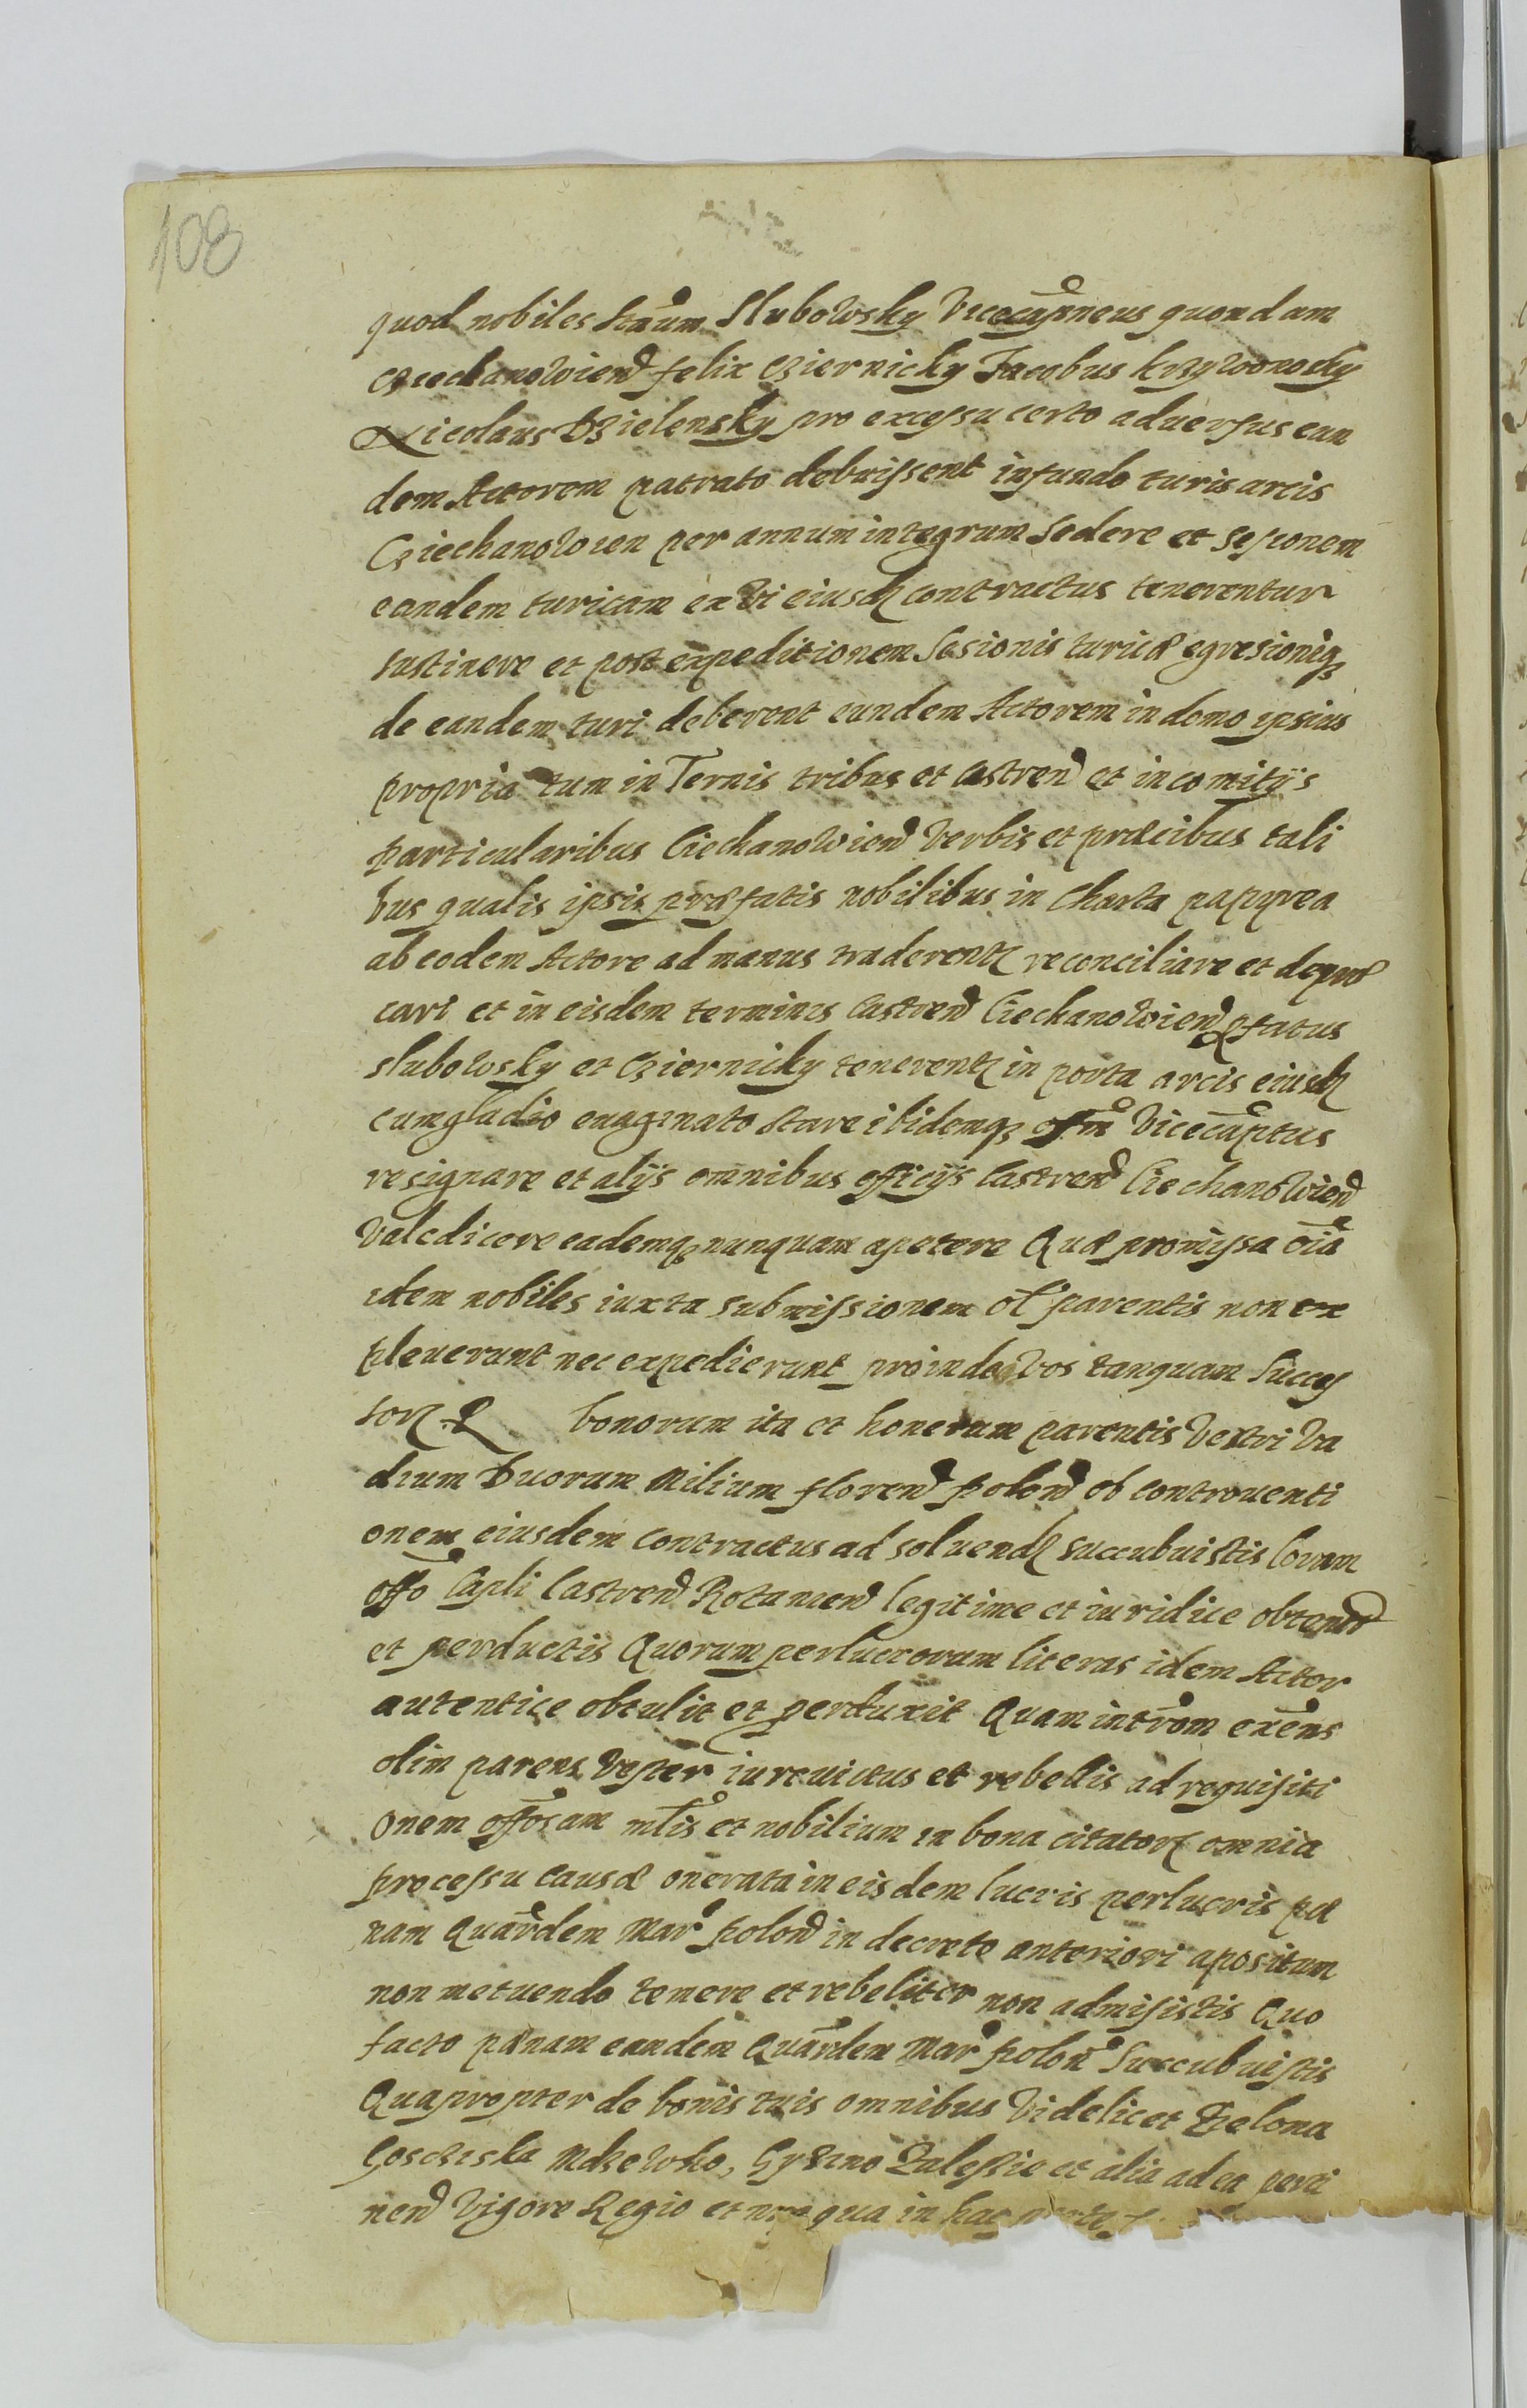 108
quod nobiles Staum Slubowsky Vicecapneus quondam
Cziechanowien Felix Cziernicky Jacobus krzywonosky
Nicolaus Dzielensky pro excessu certo aduersus eun
dem Actorem patrato debuissent in fundo turis arcis
Cziechanowien per annum integrum sedere et sesionem
eandem turicam ex vi eiusd contractus tenerentur
sustinere et post expeditionem sesionis turicæ egresionisq
de eandem turi deberent eundem Actorem in domo ipsius
propria tum in Ternis tribus et Castren et in comitijs
particularibus Ciechanowien verbis et præcibus tali
bus qualis ipsis præfatis nobilibus in Charta papyrea
ab eodem Actore ad manus traderent reconciliare et depræ
cari et in eisdem terminis Castren Ciechanowien pfatus
Slubowsky et Cziernicky tenerent in porta arcis eiusd
cum gladio euaginato stare ibidemq offm Vicecaptus
resignare et alijs omnibus officijs Castren Ciechanowien
Valedicere eademq nunquam apetere Quæ promissa oia
idem nobiles iuxta submissionem ol parentis non ex
pleuerunt nec expedierunt proinde vos tanquam Succes
sor bonorum ita et honerum parentis Vestri va
dium Duorum Milium floren polon ob controuenti
onem eiusdem contractus ad soluend succubuistis Coram
offo Capli Castren Rozanen legitime et iuridice obtentis
et perductis Quorum perlucrorum literas idem Actor
autentice obtulit et perduxit Quam introm exens
olim parens Vester iureuictus et rebellis ad requisiti
onem offosam mlis et nobilium in bona citator omnia
processu causæ onerata in eisdem lucris perlucris pæ
nam Quardem Mar polon in decreto anteriori apositum
non metuendo temere et rebeliter non admisistis Quo
facto pænam eandem Quardem Mar polon Succubuistis
Quapropter de bonis tuis omnibus Videlicet Zelona
Gosciska Makowko, Gyzino Zalessie et alia ad ea perti
nen Vigore Regio et nro qua in hac parte